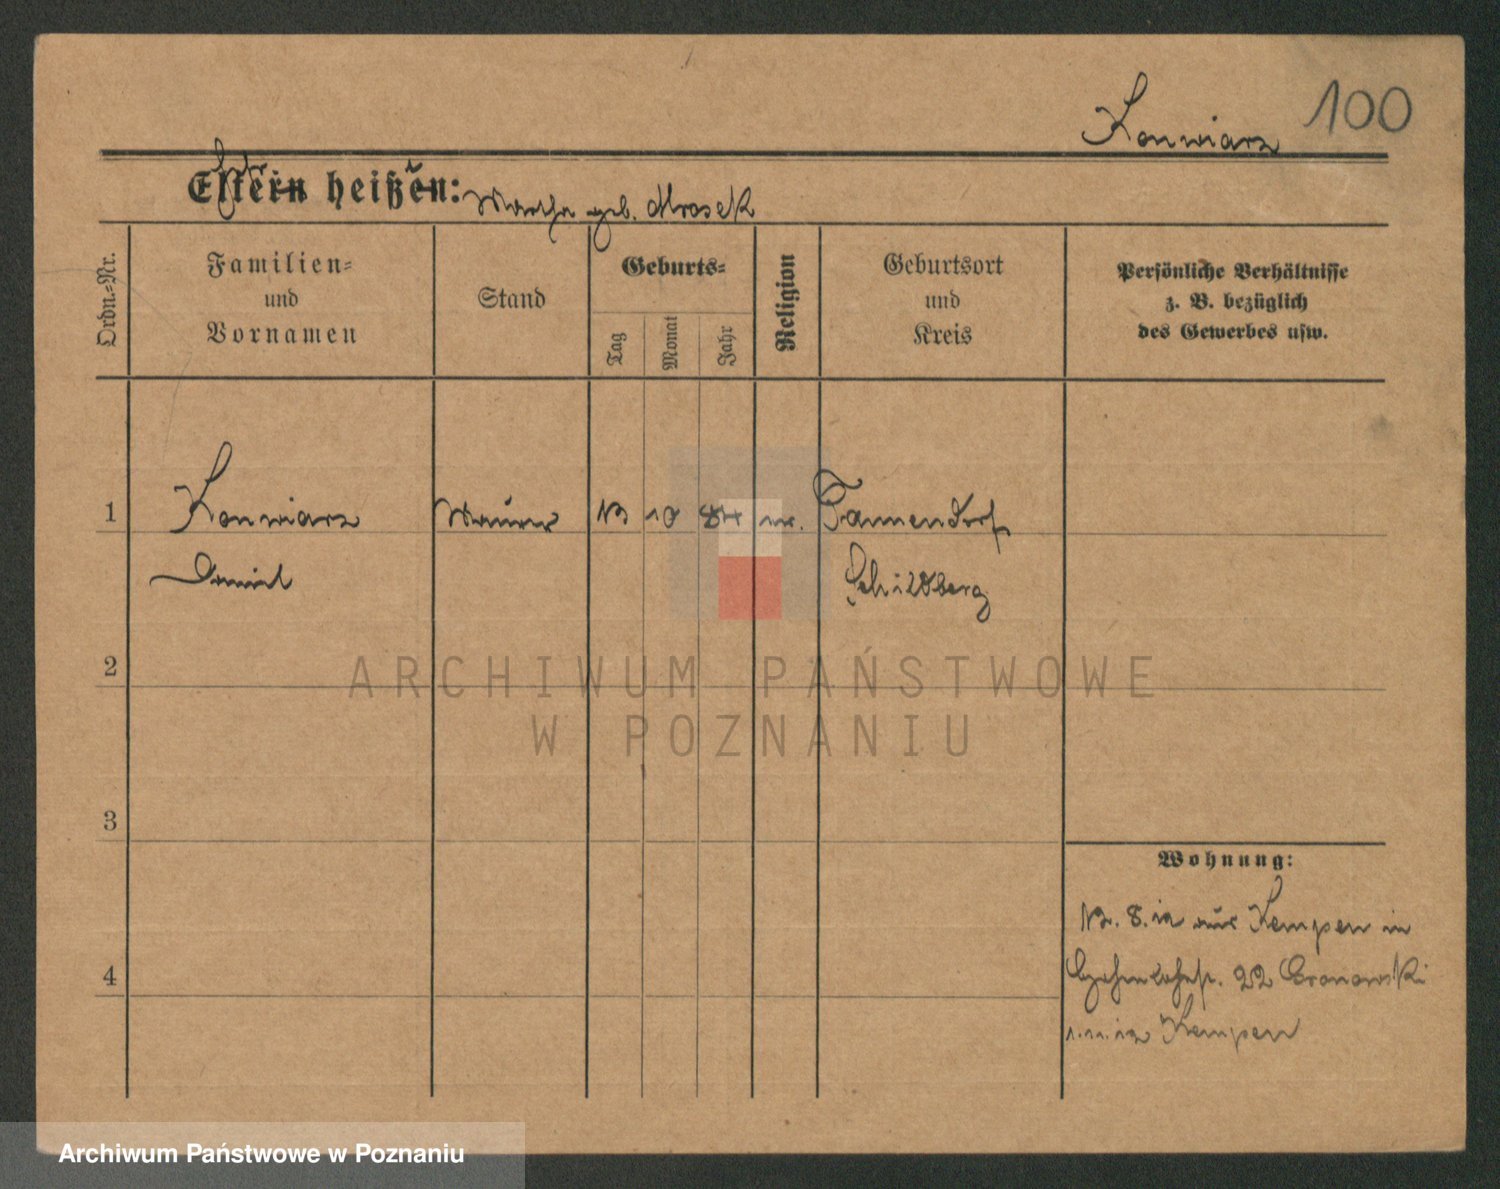 Konwiarz 100
Eltern heißen: Martha geb. Mrosek
Ordn.-Nr.
Familien-
und
Vornamen
Stand
Geburts-
Tag
Monat
Jahr
Religion
Geburtsort
und
Kreis
Persönliche Verhältnisse
z. B. bezüglich
des Gewerbes usw.
1 Konwiarz Maurer 13 10 84 Tannendorf
Daniel Schildberg
2
3
4
Wohnung:
aus Kempen in
22
Kempen
ARCHIWUM PAŃSTWOWE
W POZNANIU
Archiwum Państwowe w Poznaniu